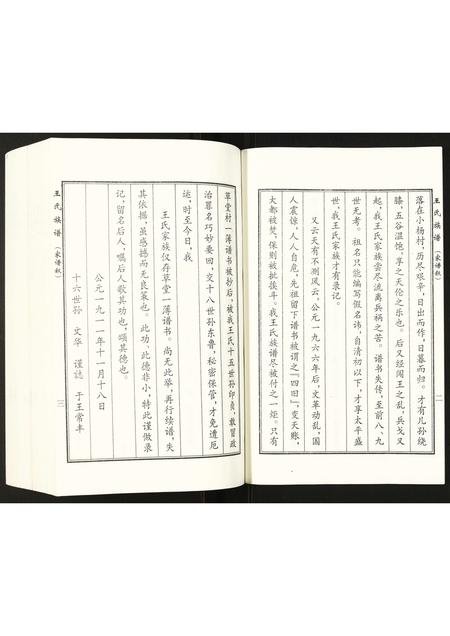 王氏族谱（家谱叙）
二
落在小杨村，历尽艰辛，日出而作，日暮而归。才有儿孙绕
膝，五谷温饱，享之天伦之乐也。后又经闯王之乱，兵戈又
起，我王氏家族尝尽流离兵祸之苦。谱书失传，至前八、九
世无考。祖名只能编写假名讳，自清初以下，才享太平盛
世，我王氏家族才有录记。
又云天有不测风云，公元一九六六年后，文革动乱，国
人震惊，人人自危，先祖留下谱书被谓之『四旧』，变天账，
大都被焚，保则被批挨斗。我王氏族谱尽被付之一炬。只有
王氏族谱（家谱叙）
三
草堂村一薄谱书被抄后，被我王氏十五世孙印贞，敢冒政
治罪名巧妙要回，交十八世孙东鲁，秘密保管，才免遭厄
运，时至今日，我
王氏家族仅存草堂一薄谱书。尚无此举，再行续谱，失
其依据，虽感撼而无良策也。此功、此德非小，特此谨做录
记，留名后人，嘱后人歌其功也，颂其德也。
公元一九一一年十一月十八日
十六世孙 文华 谨誌 于王常丰